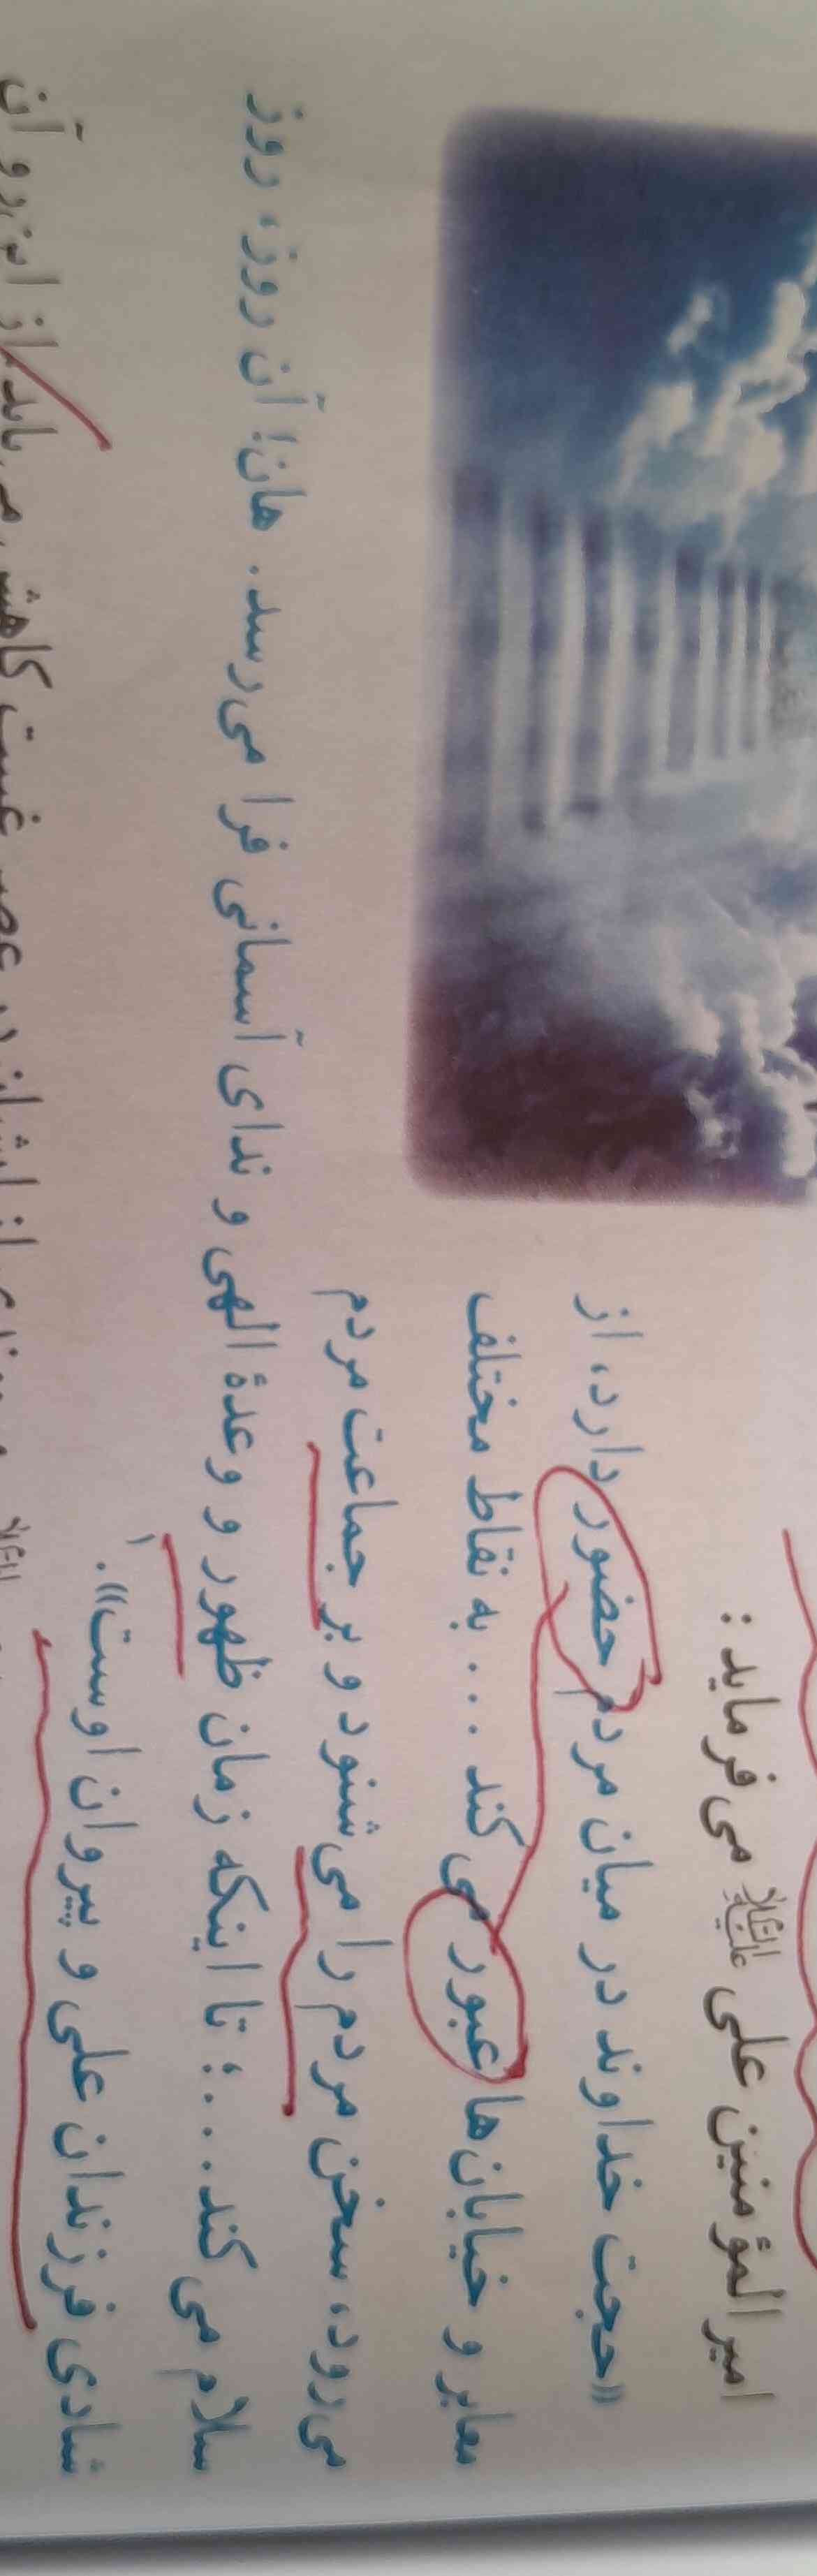 امیرالمؤمنین علی علیه السلام می‌فرماید :
«حجت خداوند در میان مردم حضور دارد، از
معابر و خیابان‌ها عبور می‌کند ... به نقاط مختلف
می‌رود، سخن مردم را می‌شنود و بر جماعت مردم
سلام می‌کند ...؛ تا اینکه زمان ظهور و وعدهٔ الهی و ندای آسمانی فرا می‌رسد. هان! آن روز، روز
شادی فرزندان علی و پیروان اوست».۱